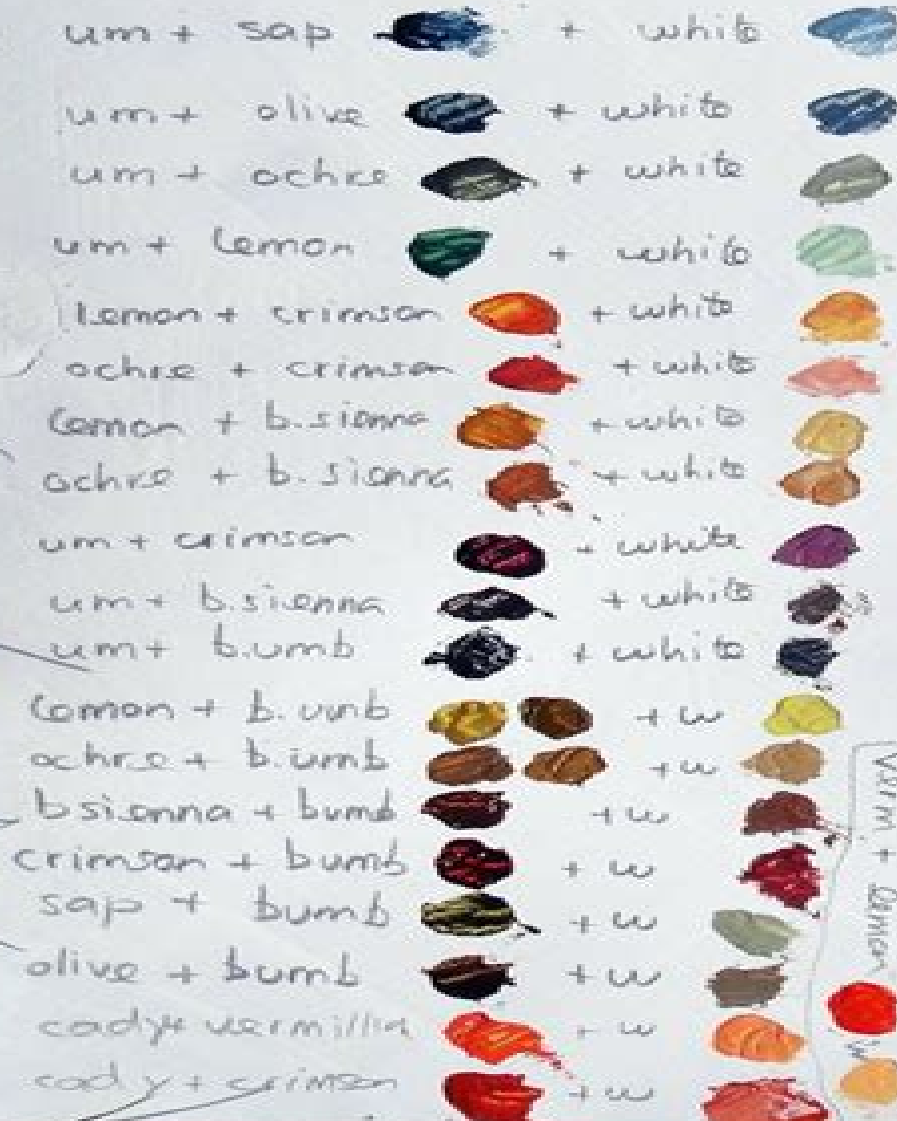 um + sap + white
um + olive + white
um + ochre + white
um + lemon + white
lemon + crimson + white
ochre + crimson + white
lemon + b.sienna + white
ochre + b.sienna + white
um + crimson + white
um + b.sienna + white
um + b.umb + white
lemon + b.umb + w
ochre + b.umb + w
b sienna + bumb + w
crimson + bumb + w
sap + bumb + w
olive + bumb + w
cady + vermillin + w
cad y + crimson + w
Verm + lemon
w